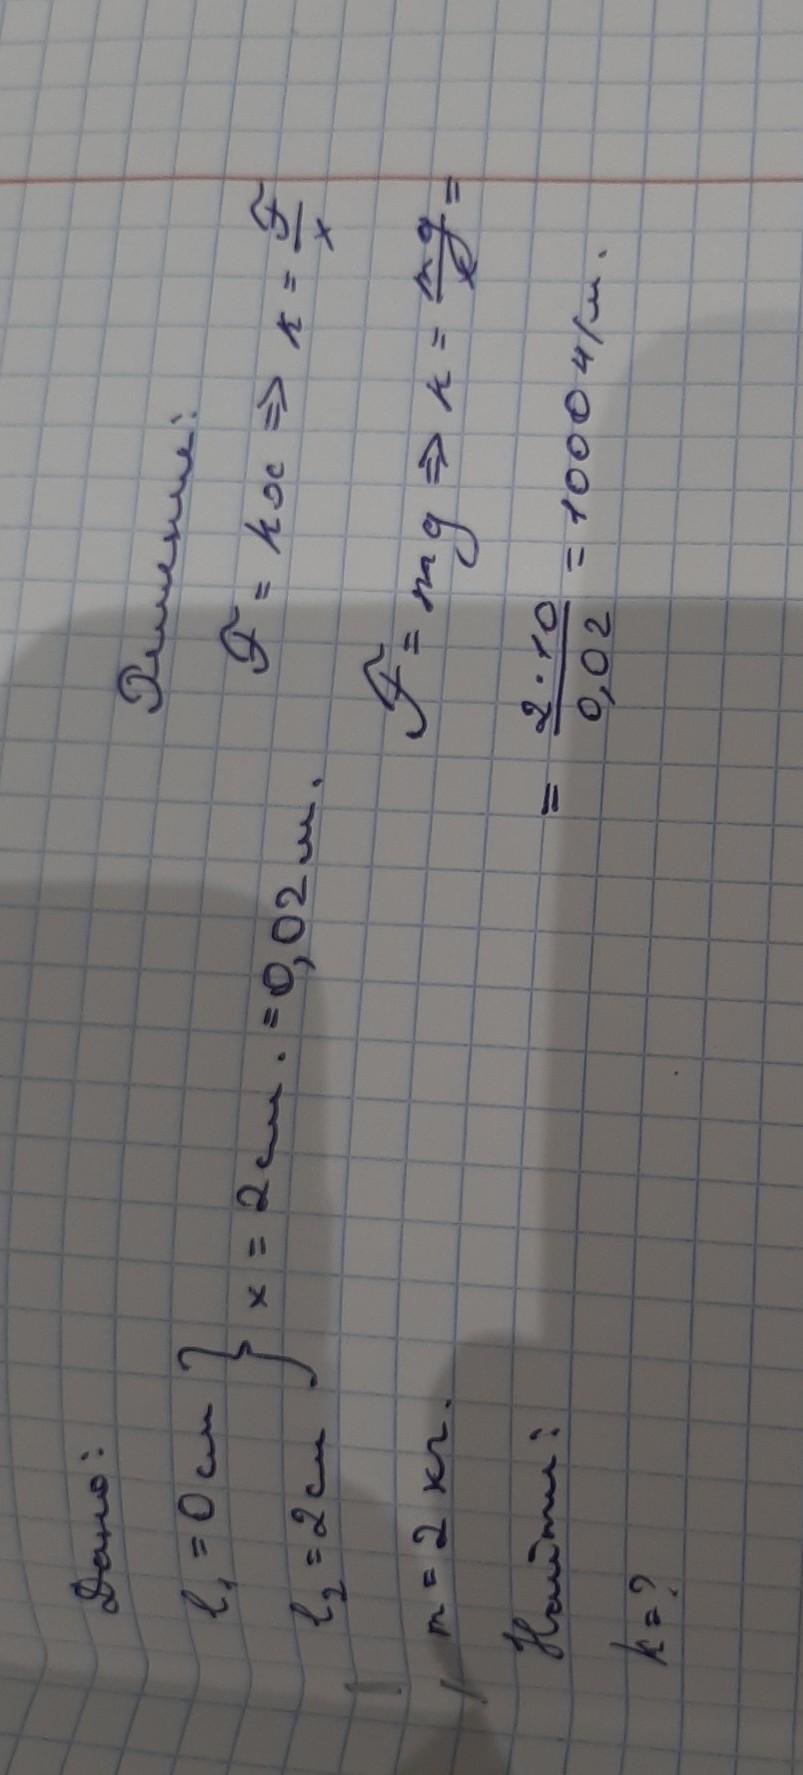 Дано:
l₁ = 0 см
l₂ = 2 см } x = 2 см. = 0,02 м.
m = 2 кг.
Найти:
k = ?
Решение:
F = kx ⇒ k = F/x
F = mg ⇒ k = mg/x =
= 2·10/0,02 = 1000 Н/м.